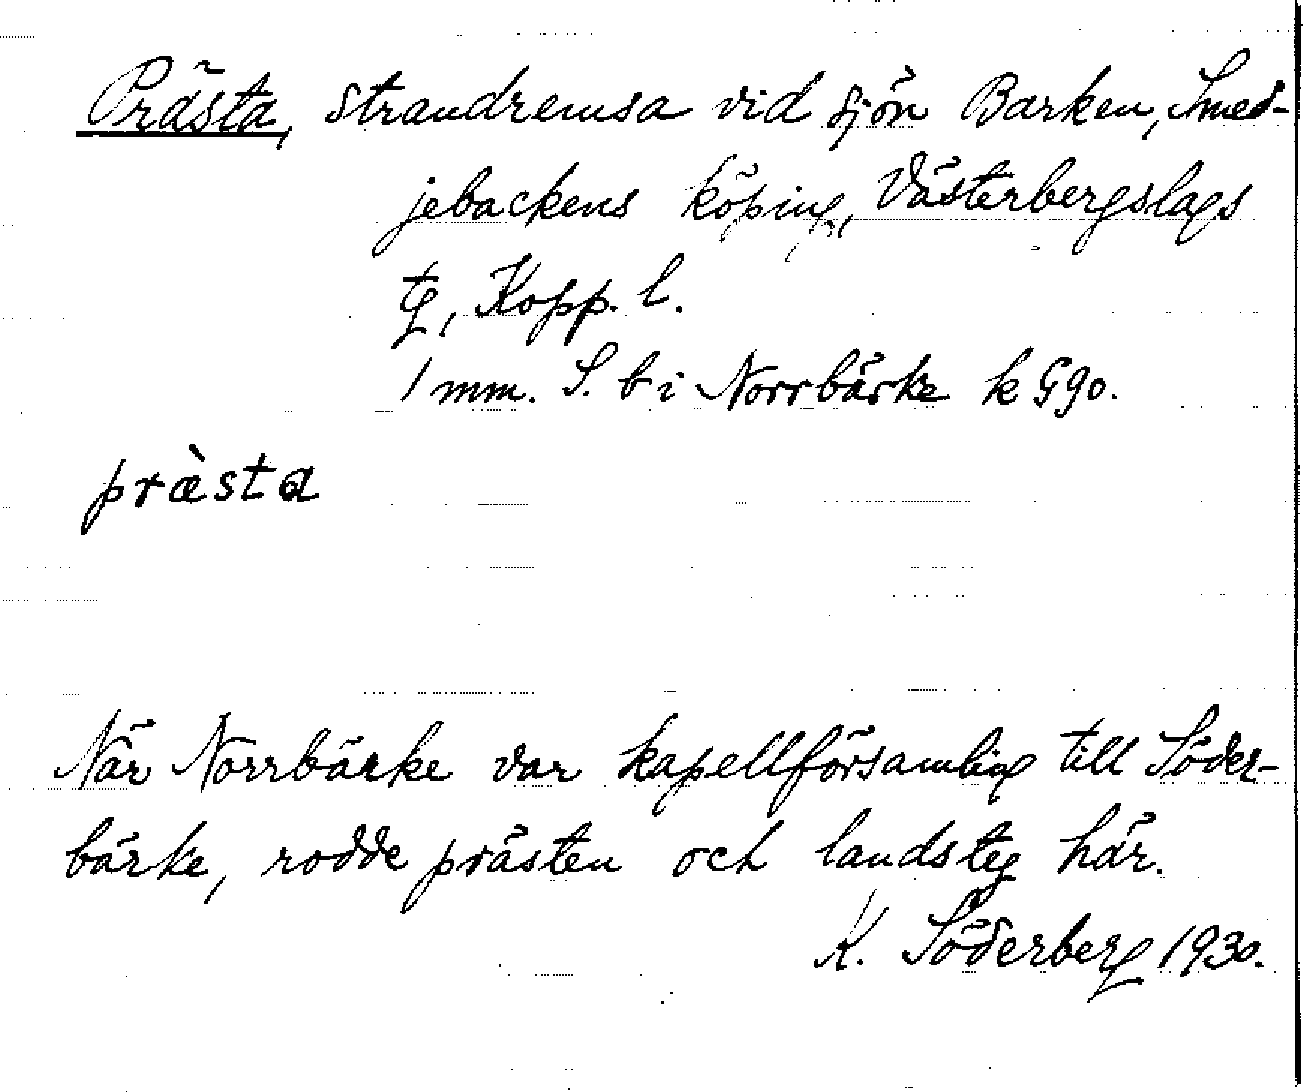 Prästa, strandremsa vid sjön Barken, Smed-
jebackens köping, Västerbergslags
tg, Kopp. l.
1 mm. S. b i Norrbärke k G90.
præ̀sta
När Norrbärke var kapellförsamling till Söder-
bärke, rodde prästen och landsteg här.
K. Söderberg 1930.